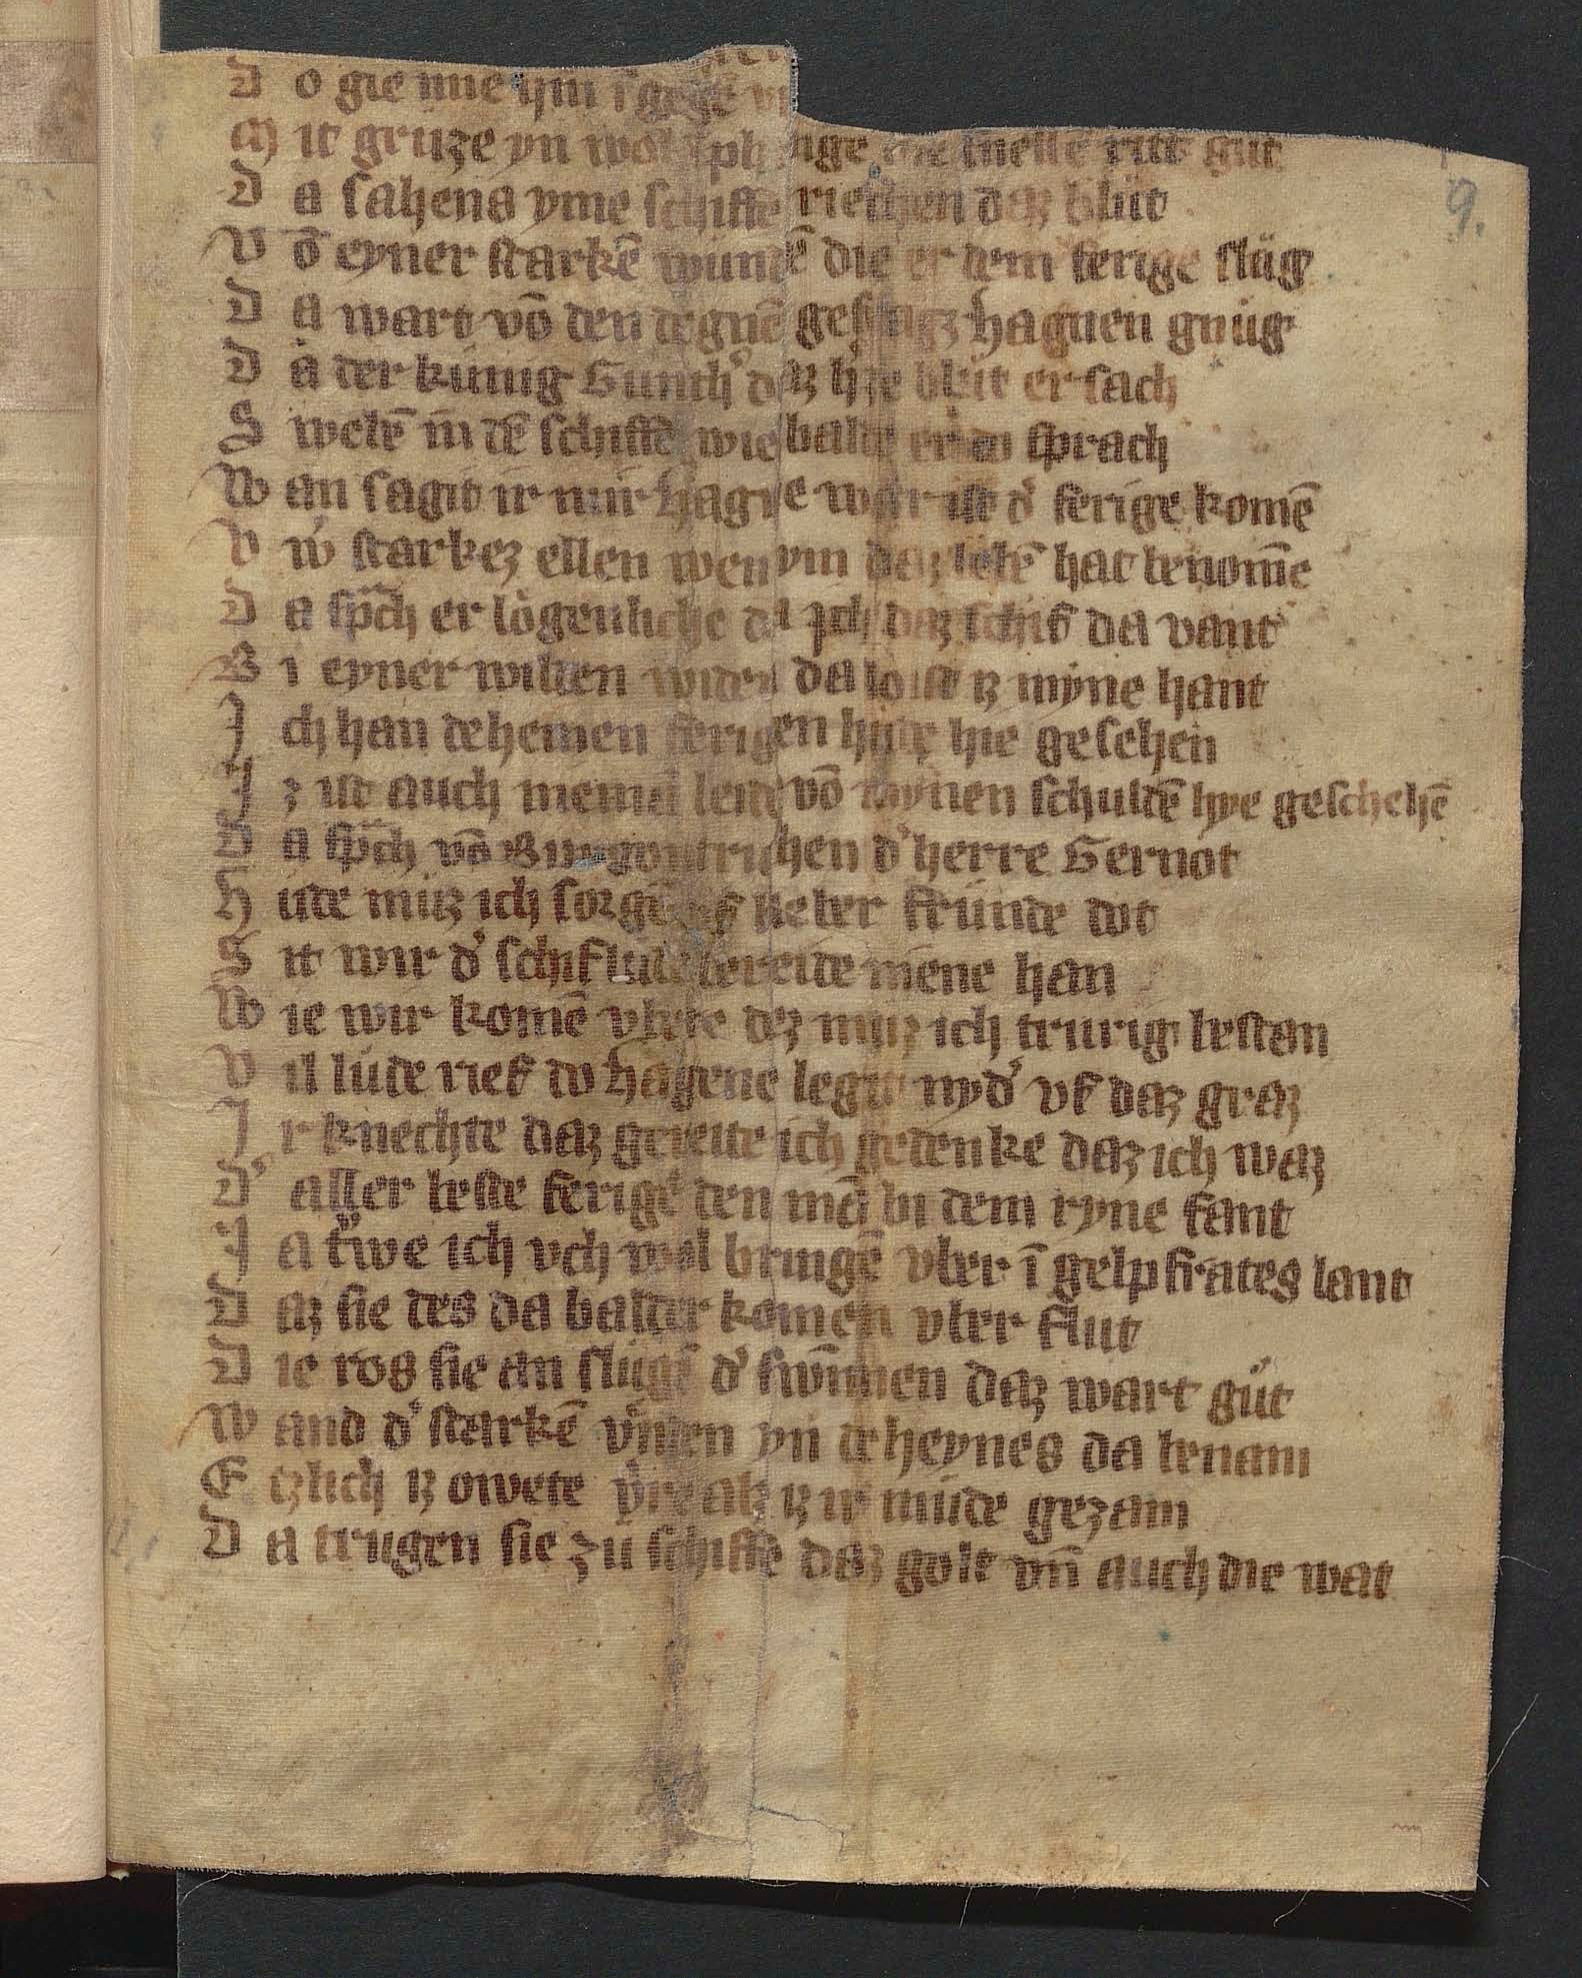 D o gie nne ym i gegē
M it grüze yn wol nge die snelle rit gut
D a sahens yme schiffe riechen daz blüt
V ō eyner starkē wundē die er dem ferige slüg
D a wart vō den degnē gefragz hagnen gnüg
D a der künig Gunth' daz heize blüt ersach
S webē in dē schiffe wie balde er do sprach
W an sagit ir mir Hagne war ist d' ferige komē
V w' starkez ellen wen ym daz lebē hat benomē
D a spch er lögenliche da ich daz schif da vant
B i eyner wilden widen da loist iz myne hant
J ch han dehemen ferigen hüte hie gesehen
J z ist auch nieman leit vō mynen schuldē hye geschehē
D a spch vō Burgontrichen d' herre Gernot
H ute müz ich sorgē uf lieber fründe dot
S it wir d' schiflude bereite mene han
W ie wir komē vbere dez muz ich trurig bestan
V il lüde rief do hagene legit nyd' vf daz graz
J r knechte daz gereite ich gedenke daz ich waz
D' aller beste ferige den mā bi dem ryne fant
J a trwe ich vch wol bringē vber ī gelpfrates lant
D az sie des da balder komen vber flut
D ie ros sie an slügē d' swimmen daz wart güt
W and d' starkē vnden yn deheynes da benam
E tzlich iz owete verre als iz ir müde gezam
D a trugen sie zü schiffe daz golt vn̄ auch die wat
9.